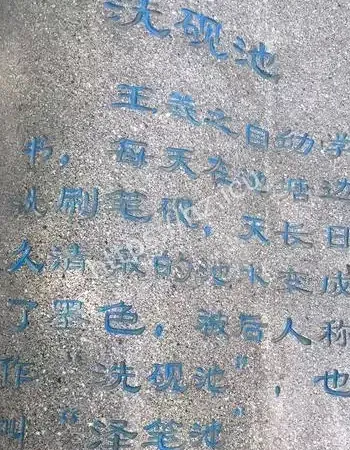 洗砚池
王羲之自幼学
书，每天在此塘边
洗刷笔砚，天长日
久清澈的池水变成
了墨色，被后人称
作“洗砚池”，也
叫“泽笔池”